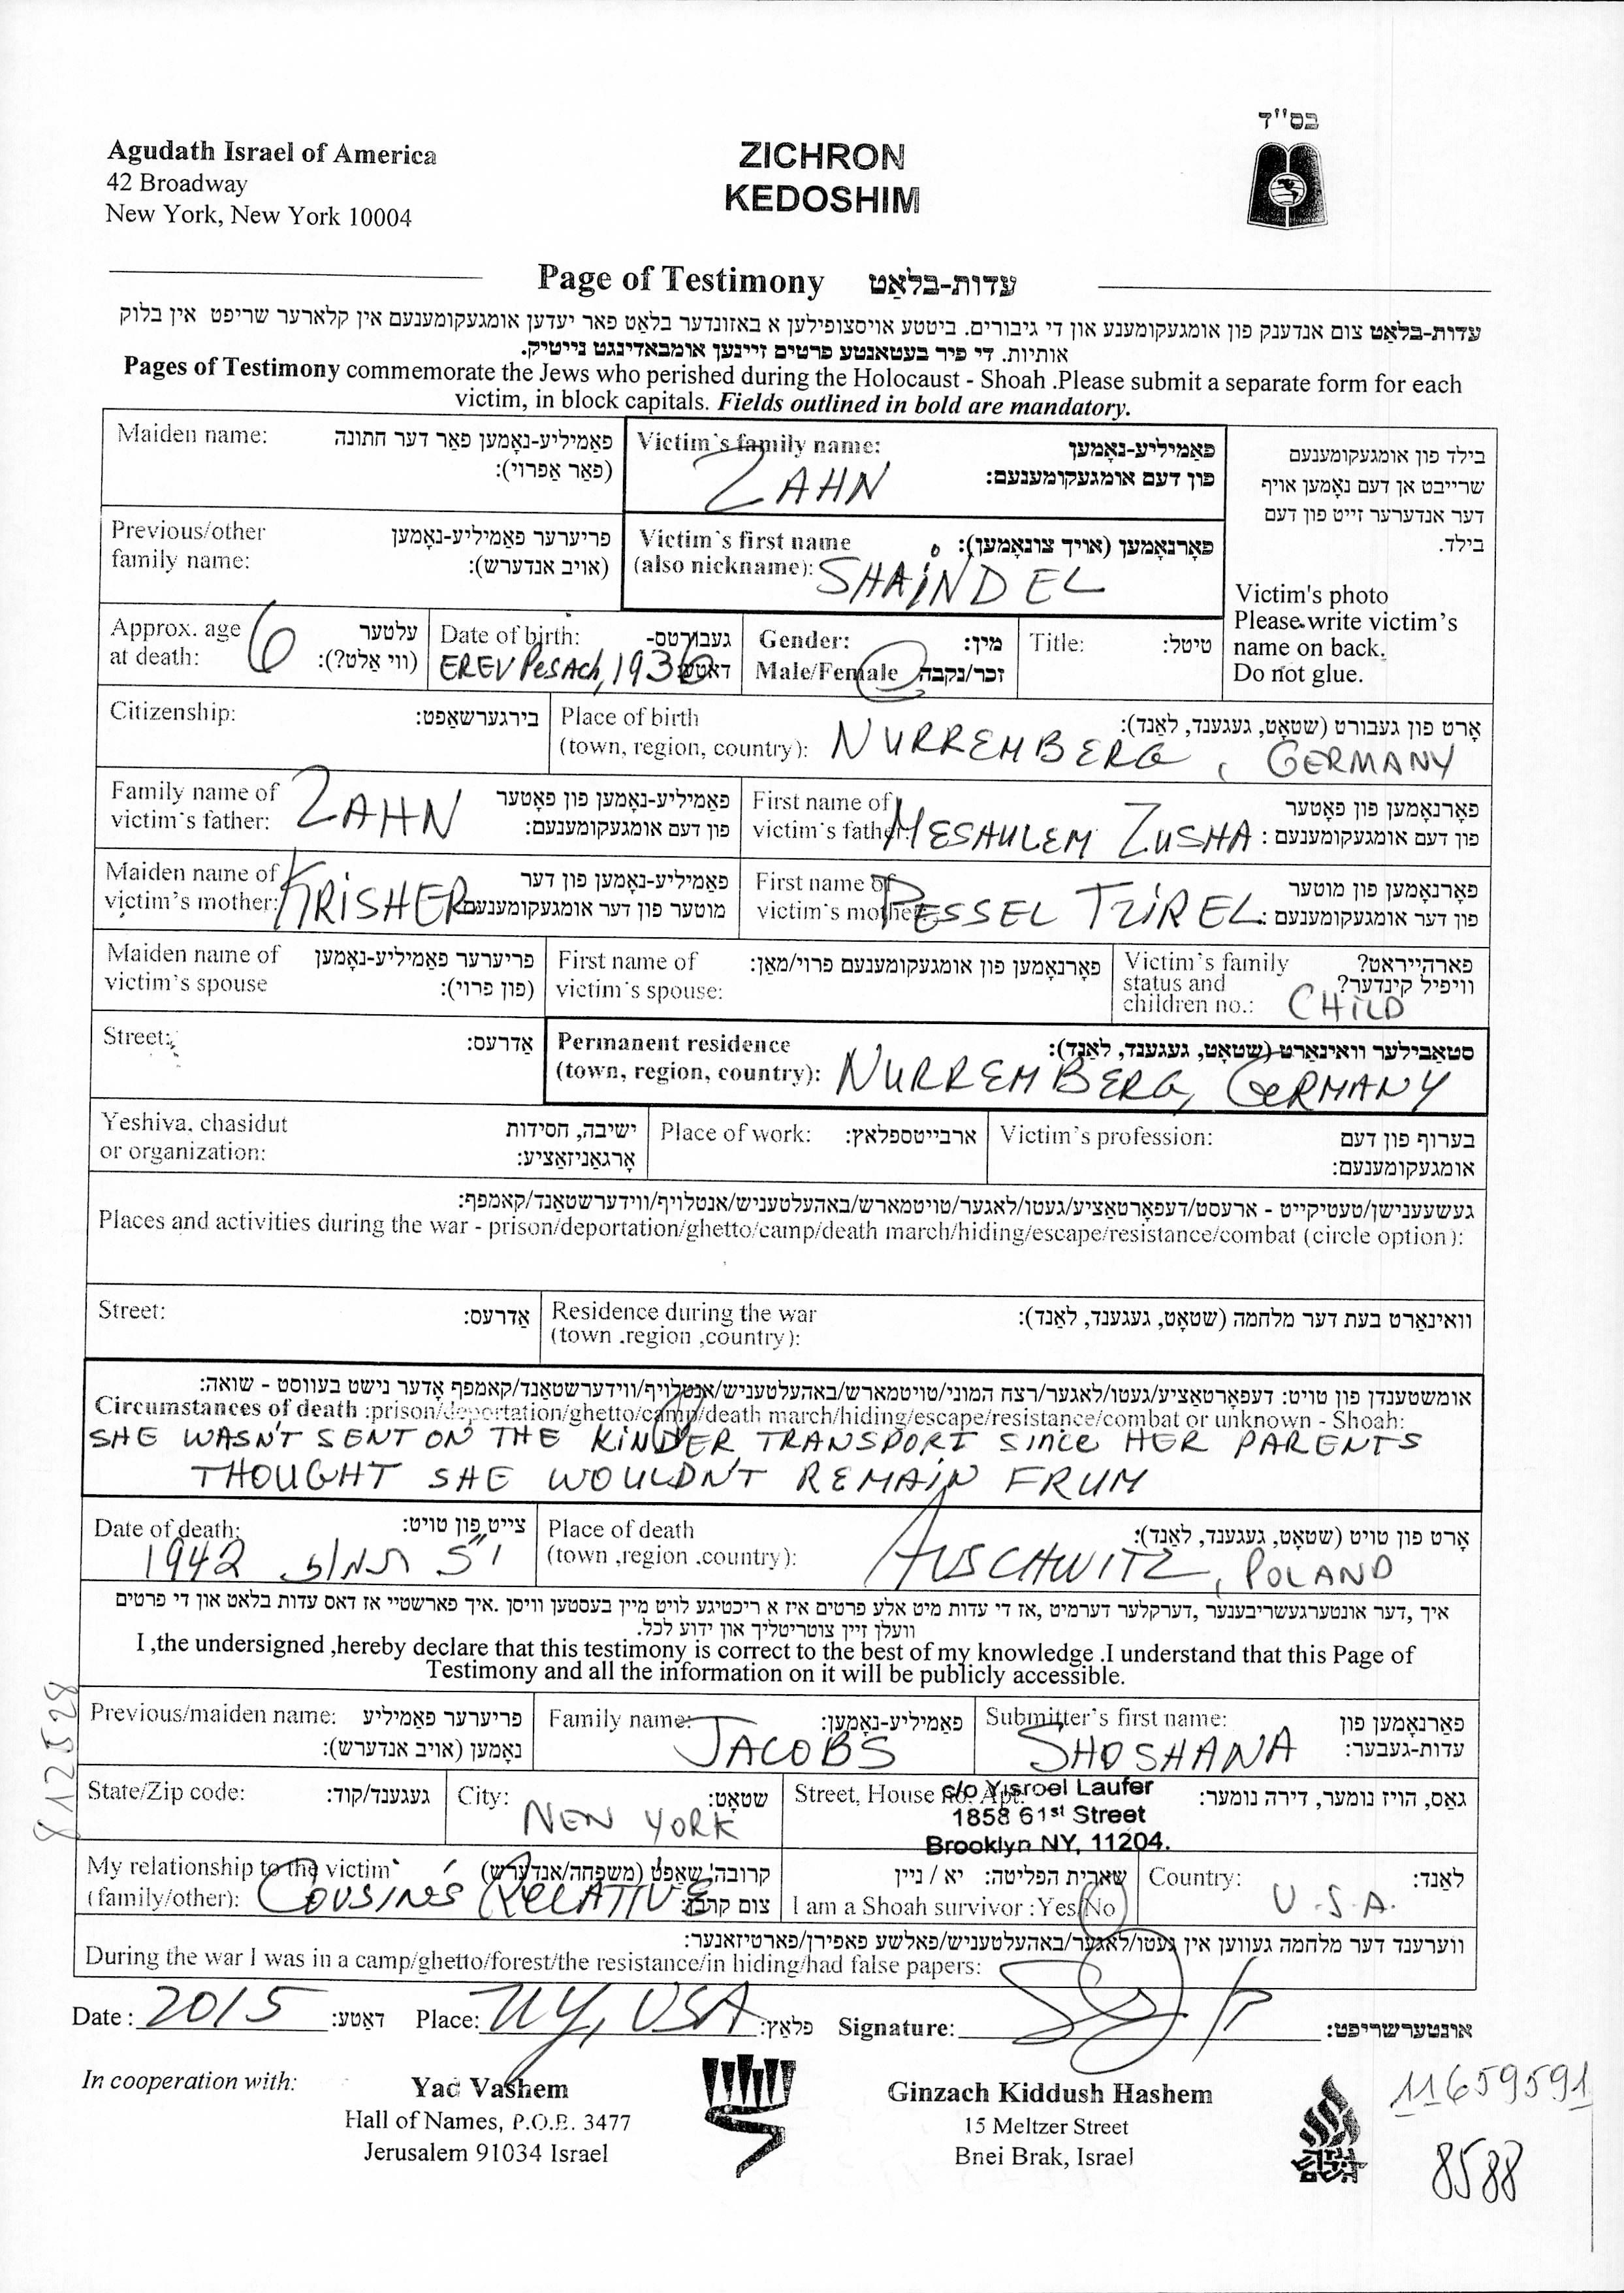 בס"ד
Agudath Israel of America
42 Broadway
New York, New York 10004
ZICHRON
KEDOSHIM
Page of Testimony עדות-בלאַט
עדות-בלאַט צום אנדענק פון אומגעקומענע און די גיבורים. ביטטע אויסצופילען א באזונדער בלאט פאר יעדען אומגעקומענעם אין קלארער שריפט אין בלוק
אותיות. די פיר בעטאנטע פרטים זיינען אומבאדינגט נייטיק.
Pages of Testimony commemorate the Jews who perished during the Holocaust - Shoah .Please submit a separate form for each
victim, in block capitals. Fields outlined in bold are mandatory.
Maiden name: פאַמיליע-נאָמען פאַר דער חתונה
(פאַר אַפרוי):
Victim's family name: פאַמיליע-נאָמען
פון דעם אומגעקומענעם:
ZAHN
בילד פון אומגעקומענעם
שרייבט אן דעם נאָמען אויף
דער אנדערער זייט פון דעם
בילד.
Victim's photo
Please write victim's
name on back.
Do not glue.
Previous/other פריערער פאַמיליע-נאָמען
family name: (אויב אנדערש):
Victim's first name פאָרנאָמען (אויך צונאָמען):
(also nickname): SHAINDEL
Approx. age עלטער
at death: (ווי אַלט?):
6
Date of birth: געבורטס-
דאטע
EREV PESACH, 1936
Gender: מין:
Male/Female זכר/נקבה
Title: טיטל:
Citizenship: בירגערשאַפט:
Place of birth אָרט פון געבורט (שטאָט, געגענד, לאַנד):
(town, region, country): NURREMBERG, GERMANY
Family name of פאַמיליע-נאָמען פון פאָטער
victim's father: פון דעם אומגעקומענעם:
ZAHN
First name of פאָרנאָמען פון פאָטער
victim's father: פון דעם אומגעקומענעם:
MESHULEM ZUSHA
Maiden name of פאַמיליע-נאָמען פון דער
victim's mother: מוטער פון דער אומגעקומענעם
KRISHER
First name of פאָרנאָמען פון מוטער
victim's mother: פון דער אומגעקומענעם:
PESSEL TZIREL
Maiden name of פריערער פאַמיליע-נאָמען
victim's spouse (פון פרוי):
First name of פאָרנאָמען פון אומגעקומענעם פרוי/מאַן:
victim's spouse:
Victim's family פארהייראט?
status and וויפיל קינדער?
children no.: CHILD
Street: אַדרעס:
Permanent residence סטאַבילער וואינאַרט (שטאָט, געגענד, לאַנד):
(town, region, country): NURREMBERG, GERMANY
Yeshiva, chasidut ישיבה, חסידות
or organization: אָרגאַניזאַציע:
Place of work: ארבייטספלאץ:
Victim's profession: בערוף פון דעם
אומגעקומענעם:
געשעענישן/טעטיקייט - ארעסט/דעפאָרטאַציע/געטו/לאגער/טויטמארש/באהעלטעניש/אנטלויף/ווידערשטאַנד/קאמפף:
Places and activities during the war - prison/deportation/ghetto/camp/death march/hiding/escape/resistance/combat (circle option):
Street: אַדרעס:
Residence during the war וואינאַרט בעת דער מלחמה (שטאָט, געגענד, לאַנד):
(town .region ,country):
אומשטענדן פון טויט: דעפאָרטאַציע/געטו/לאגער/רצח המוני/טויטמארש/באהעלטעניש/אנטלויף/ווידערשטאַנד/קאמפף אָדער נישט בעוווסט - שואה:
Circumstances of death :prison/deportation/ghetto/camp/death march/hiding/escape/resistance/combat or unknown - Shoah:
SHE WASN'T SENT ON THE KINDER TRANSPORT SINCE HER PARENTS
THOUGHT SHE WOULDN'T REMAIN FRUM
Date of death: צייט פון טויט:
1942
Place of death אָרט פון טויט (שטאָט, געגענד, לאַנד):
(town ,region .country): AUSCHWITZ, POLAND
איך ,דער אונטערגעשריבענער ,דערקלער דערמיט ,אז די עדות מיט אלע פרטים איז א ריכטיגע לויט מיין בעסטען וויסן .איך פארשטיי אז דאס עדות בלאט און די פרטים
וועלן זיין צוטריטליך און ידוע לכל.
I ,the undersigned ,hereby declare that this testimony is correct to the best of my knowledge .I understand that this Page of
Testimony and all the information on it will be publicly accessible.
Previous/maiden name: פריערער פאַמיליע
נאָמען (אויב אנדערש):
Family name: פאַמיליע-נאָמען:
JACOBS
Submitter's first name: פאַרנאָמען פון
עדות-געבער:
SHOSHANA
State/Zip code: געגענד/קוד:
City: שטאָט:
NEW YORK
Street, House no. Apt: גאַס, הויז נומער, דירה נומער:
c/o Yisroel Laufer
1858 61st Street
Brooklyn NY, 11204.
My relationship to the victim קרובה'שאַפט (משפחה/אנדערש)
(family/other): צום קרבן:
COUSIN'S RELATIVE
שארית הפליטה: יא / ניין
I am a Shoah survivor :Yes/No
Country: לאַנד:
U.S.A.
ווערענד דער מלחמה געווען אין געטו/לאַגער/באהעלטעניש/פאלשע פאפירן/פארטיזאנער:
During the war I was in a camp/ghetto/forest/the resistance/in hiding/had false papers:
Date : 2015 דאַטע: Place: NY, USA פלאַץ: Signature: אונטערשריפט:
In cooperation with:
Yad Vashem
Hall of Names, P.O.B. 3477
Jerusalem 91034 Israel
Ginzach Kiddush Hashem
15 Meltzer Street
Bnei Brak, Israel
11659591
8588
812528